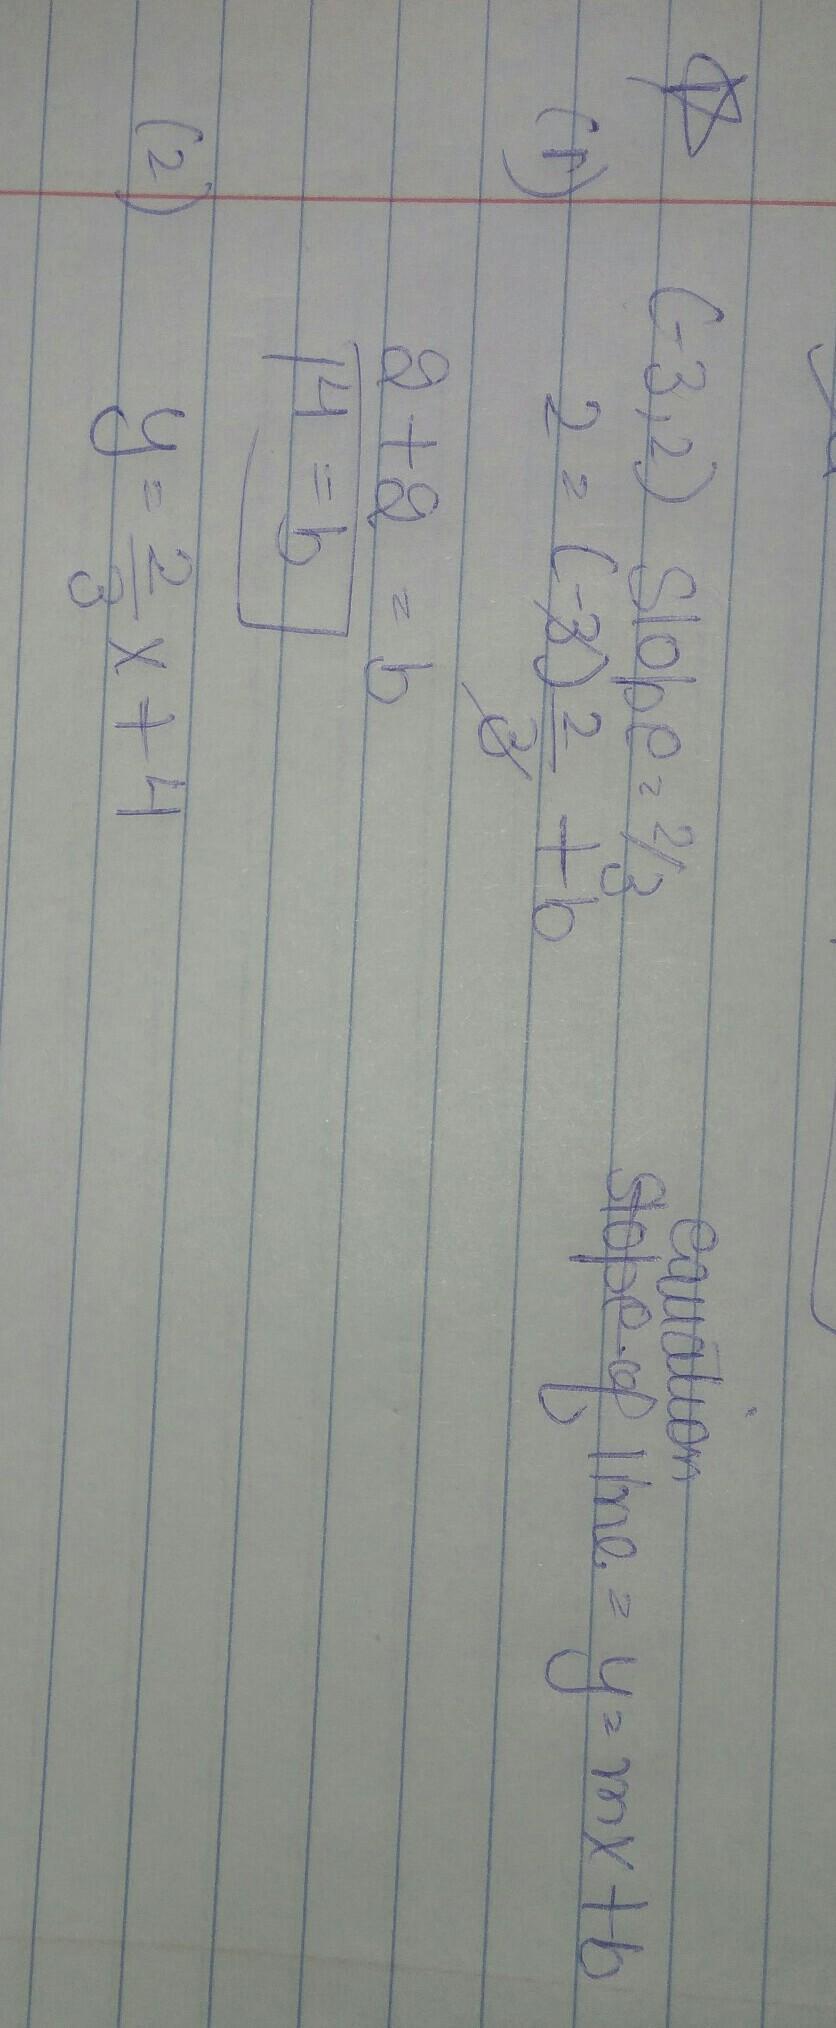 (-3,2) Slope = 2/3
equation
slope of line = y = mx + b
(1) 2 = (-3) 2/3 + b
2 + 2 = b
4 = b
(2) y = 2/3 x + 4